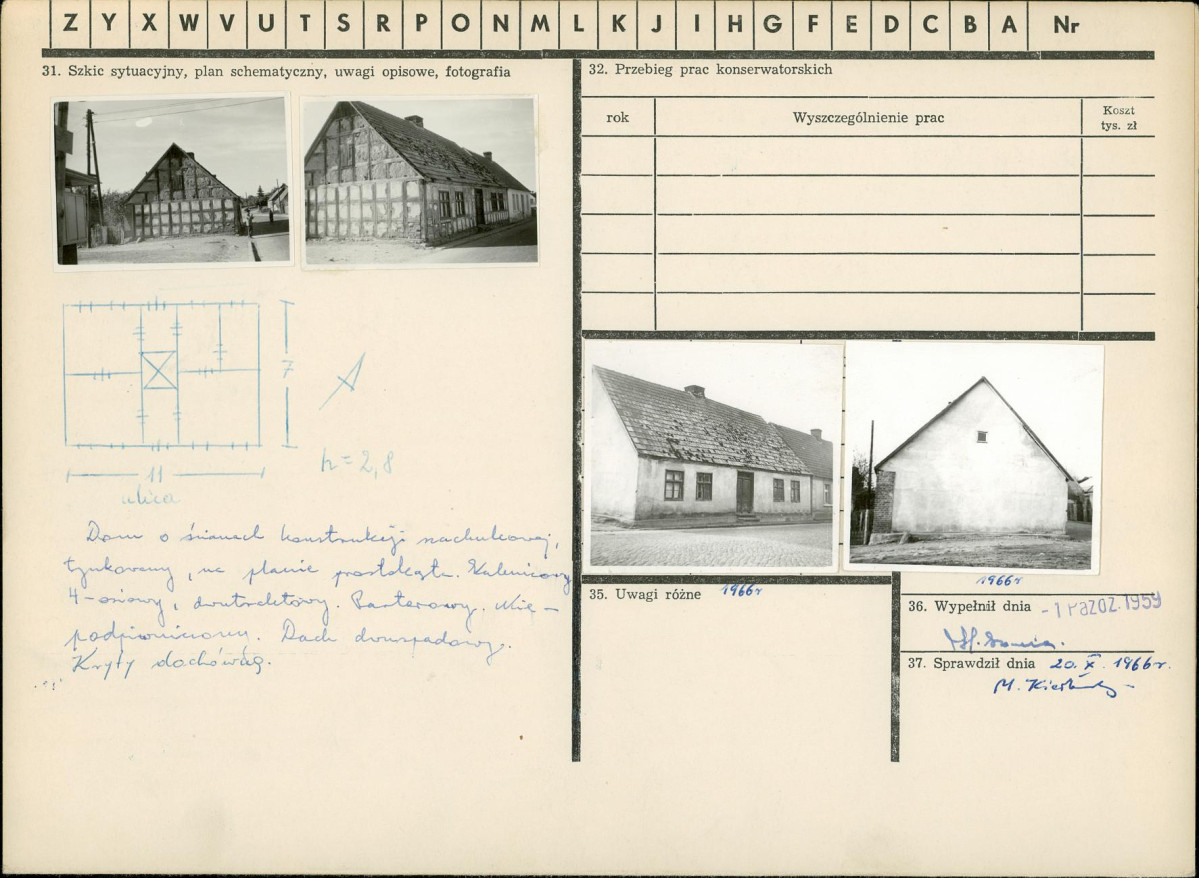 Z Y X W V U T S R P O N M L K J I H G F E D C B A Nr
31. Szkic sytuacyjny, plan schematyczny, uwagi opisowe, fotografia
7
11
ulica
h = 2,8
Dom o ścianach konstrukcji rachulcowej,
tynkowany, na planie prostokąta. Kalenicowy
4-osiowy, dwutraktowy. Parterowy. Nie-
podpiwniczony. Dach dwuspadowy.
Kryty dachówką.
32. Przebieg prac konserwatorskich
rok Wyszczególnienie prac Koszt
tys. zł
35. Uwagi różne
1966r
1966r
36. Wypełnił dnia -1 PAZDZ. 1959
37. Sprawdził dnia 20.X.1966r.
M.